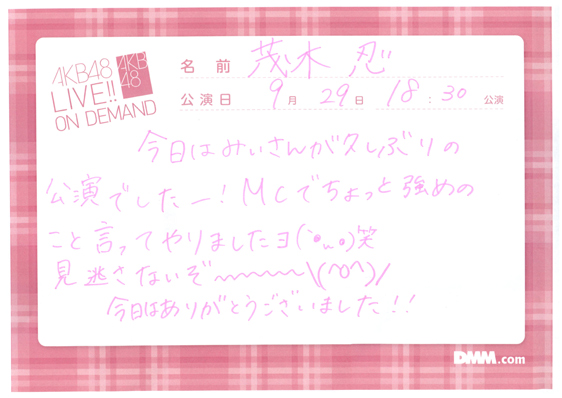 AKB48
LIVE!!
ON DEMAND
AKB
48
名前 茂木 忍
公演日 9月 29日 18:30 公演
今日はみぃさんが久しぶりの
公演でしたー！MCでちょっと強めの
こと言ってやりましたヨ(`•ω•)笑
見逃さないぞ〜〜〜〜〜\(^o^)/
今日はありがとうございました!!
DMM.com